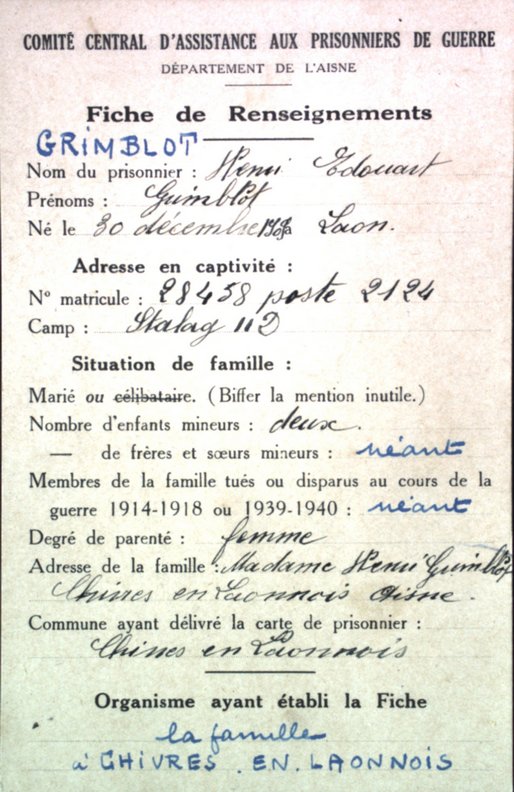 COMITÉ CENTRAL D'ASSISTANCE AUX PRISONNIERS DE GUERRE
DÉPARTEMENT DE L'AISNE
Fiche de Renseignements
GRIMBLOT
Nom du prisonnier : Henri Edouart
Prénoms : Grimblot
Né le 30 décembre à Laon.
Adresse en captivité :
N° matricule : 28458 poste 2124
Camp : Stalag II D
Situation de famille :
Marié ou célibataire. (Biffer la mention inutile.)
Nombre d'enfants mineurs : deux.
— de frères et sœurs mineurs : néant
Membres de la famille tués ou disparus au cours de la
guerre 1914-1918 ou 1939-1940 : néant
Degré de parenté : femme
Adresse de la famille : Madame Henri Grimblot
Chivres en Laonnois Aisne.
Commune ayant délivré la carte de prisonnier :
Chivres en Laonnois
Organisme ayant établi la Fiche
la famille
à CHIVRES . EN . LAONNOIS